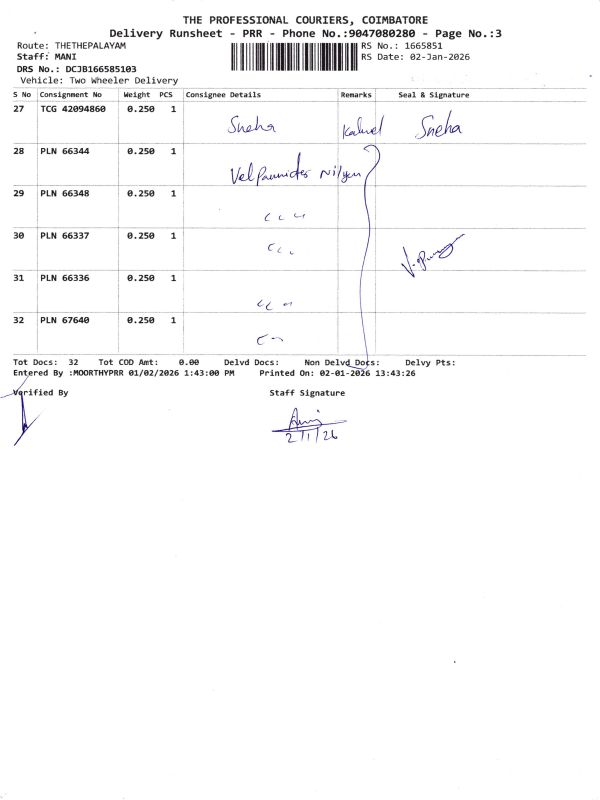 THE PROFESSIONAL COURIERS, COIMBATORE
Delivery Runsheet - PRR - Phone No.:9047080280 - Page No.:3
Route: THETHEPALAYAM RS No.: 1665851
Staff: MANI RS Date: 02-Jan-2026
DRS No.: DCJB166585103
Vehicle: Two Wheeler Delivery
S No Consignment No Weight PCS Consignee Details Remarks Seal & Signature
27 TCG 42094860 0.250 1
Sneha Sneha
28 PLN 66344 0.250 1
29 PLN 66348 0.250 1
30 PLN 66337 0.250 1
31 PLN 66336 0.250 1
32 PLN 67640 0.250 1
Tot Docs: 32 Tot COD Amt: 0.00 Delvd Docs: Non Delvd Docs: Delvy Pts:
Entered By :MOORTHYPRR 01/02/2026 1:43:00 PM Printed On: 02-01-2026 13:43:26
Verified By Staff Signature
2/1/26